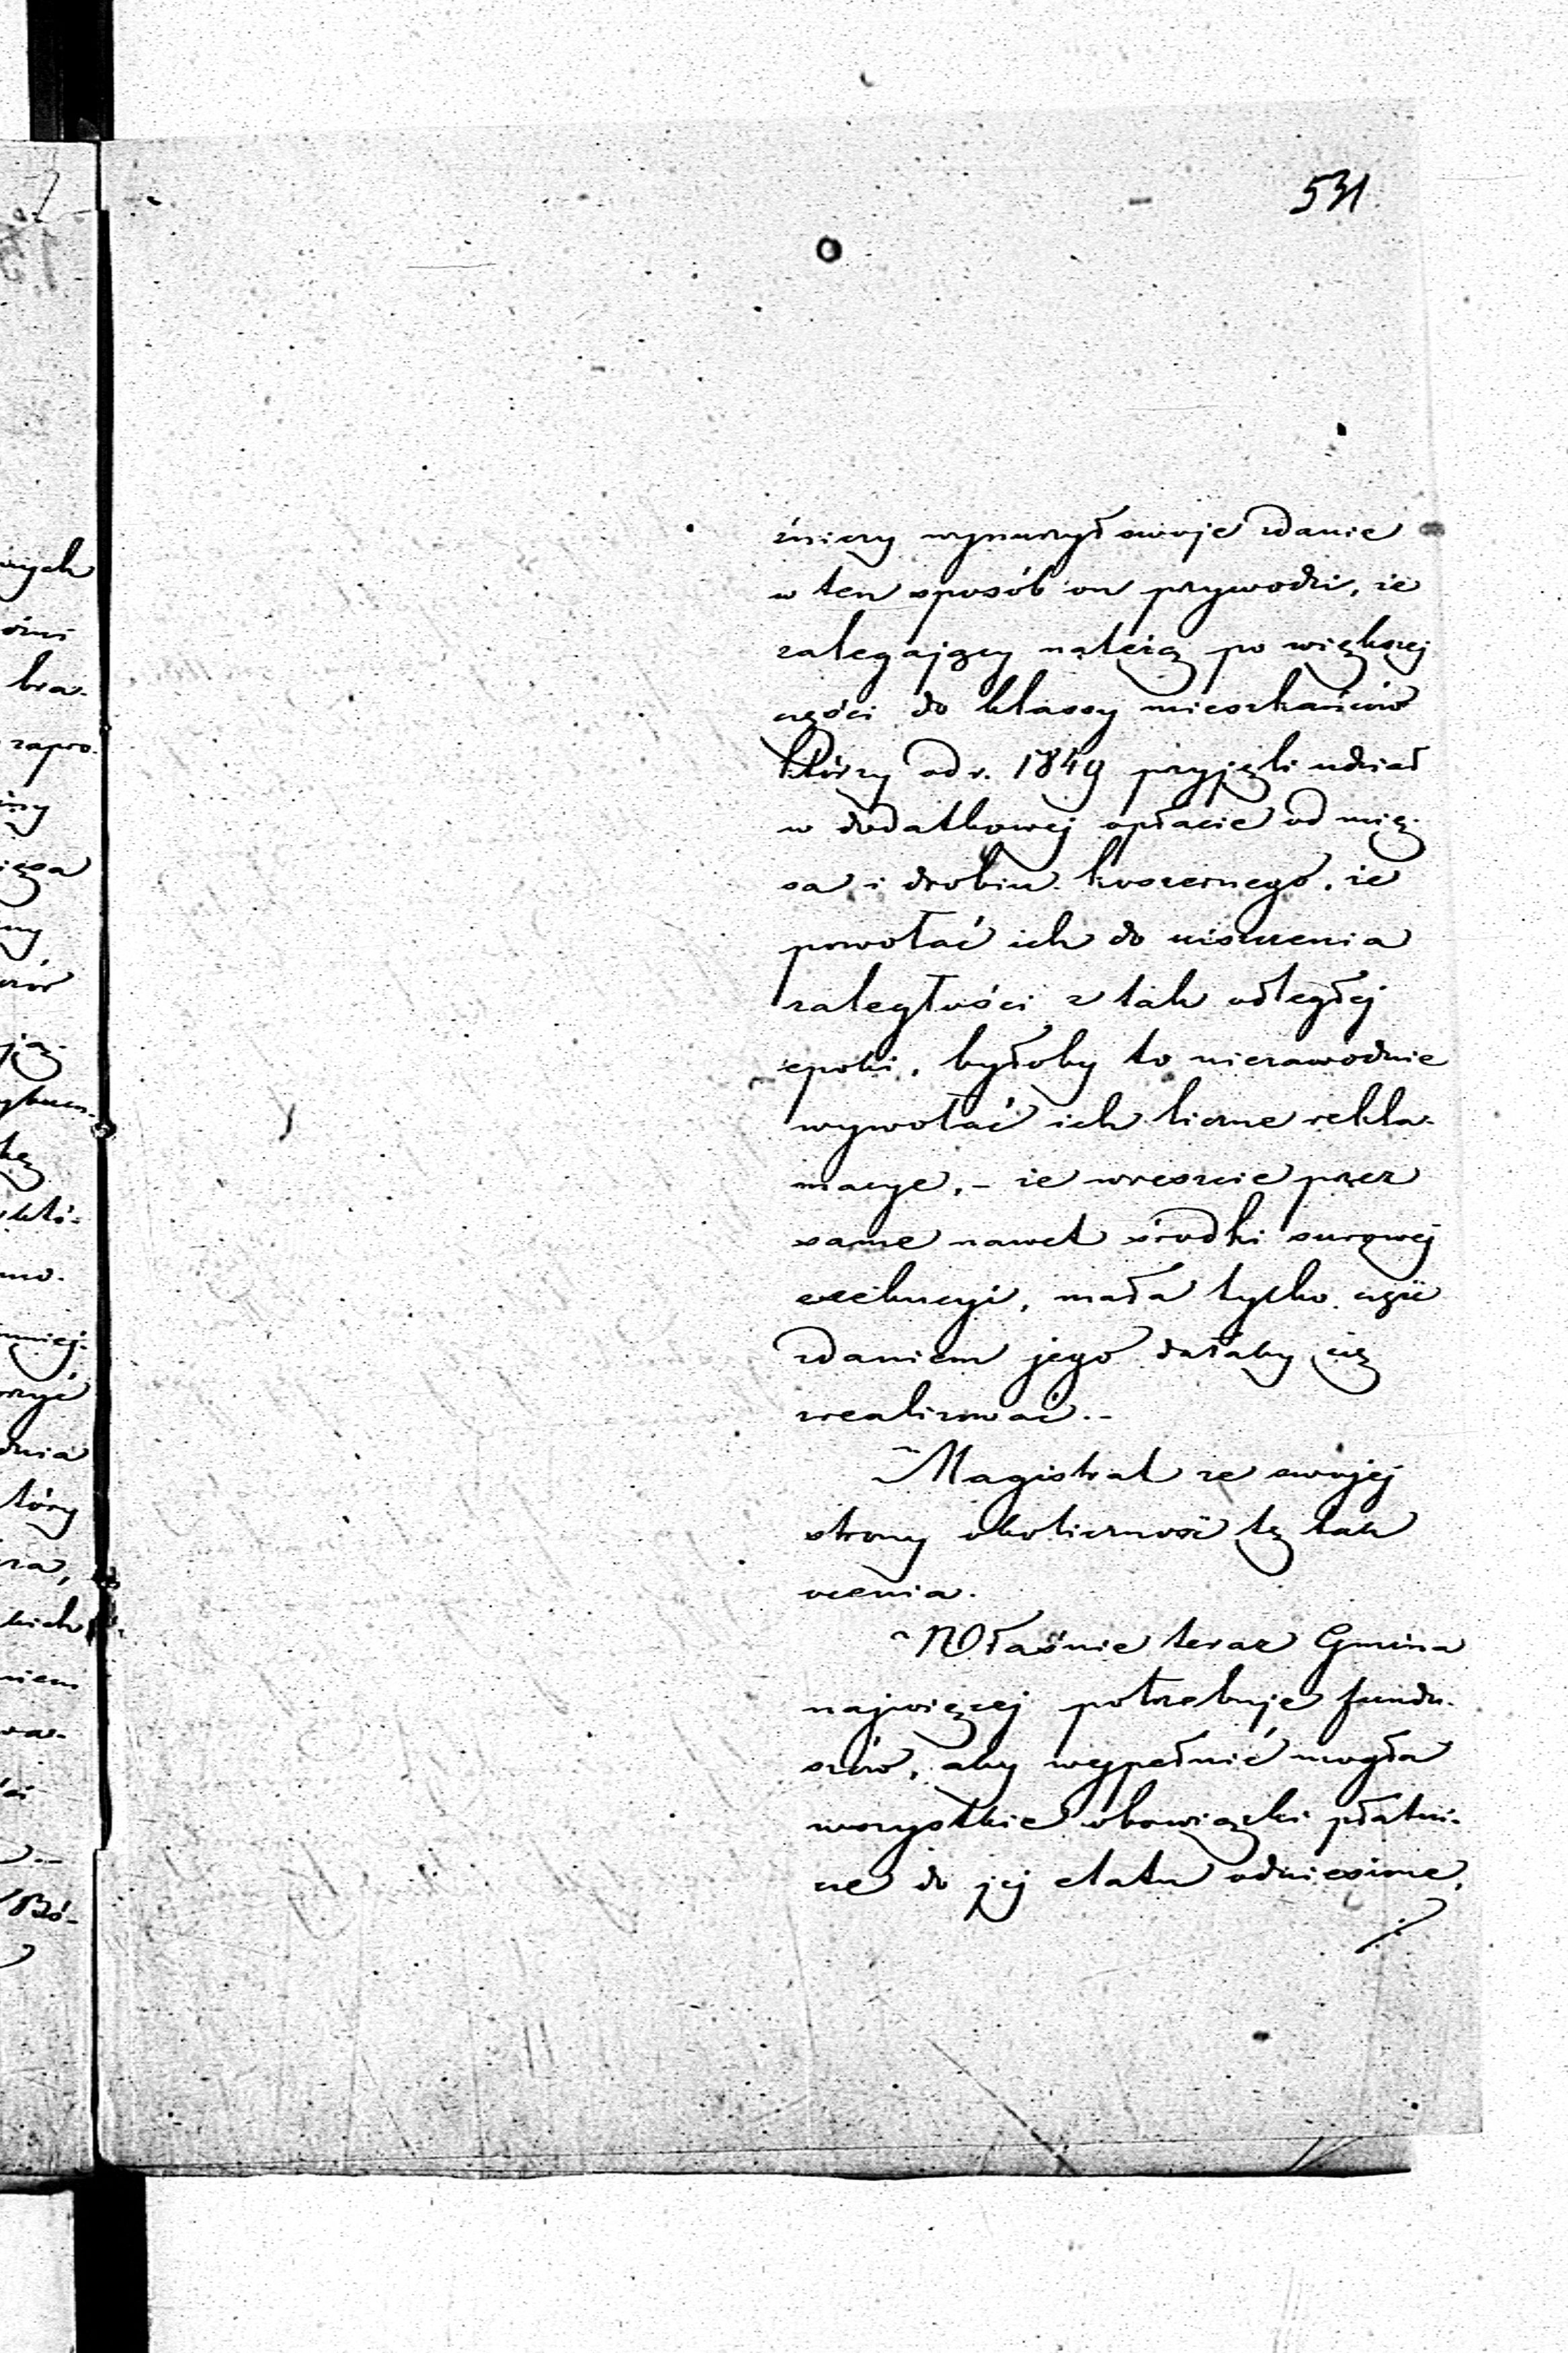 531
żniczy wynurzył swoje zdanie
w ten sposób on przywodzi, że
zalegający należą po większej
części do klassy mieszkańców
którzy od r. 1849 przyjęli udział
w dodatkowej opłacie od mię-
sa i drobiu koszernego, że
powołać ich do uiszczenia
zaległości z tak odległej
epoki, byłoby to niezawodnie
wywołać ich liczne rekla-
macye, - że wreszcie przez
same nawet środki surowej
exekucyi, mała tylko część
zdaniem jego dałaby się
zrealizować. -
Magistrat ze swojej
strony okoliczność tę tak
ocenia.
Właśnie teraz Gmina
najwięcej potrzebuje fundu-
szów, aby wypełnić mogła
wszystkie obowiązki płatni-
cze do jej etatu odniesione,